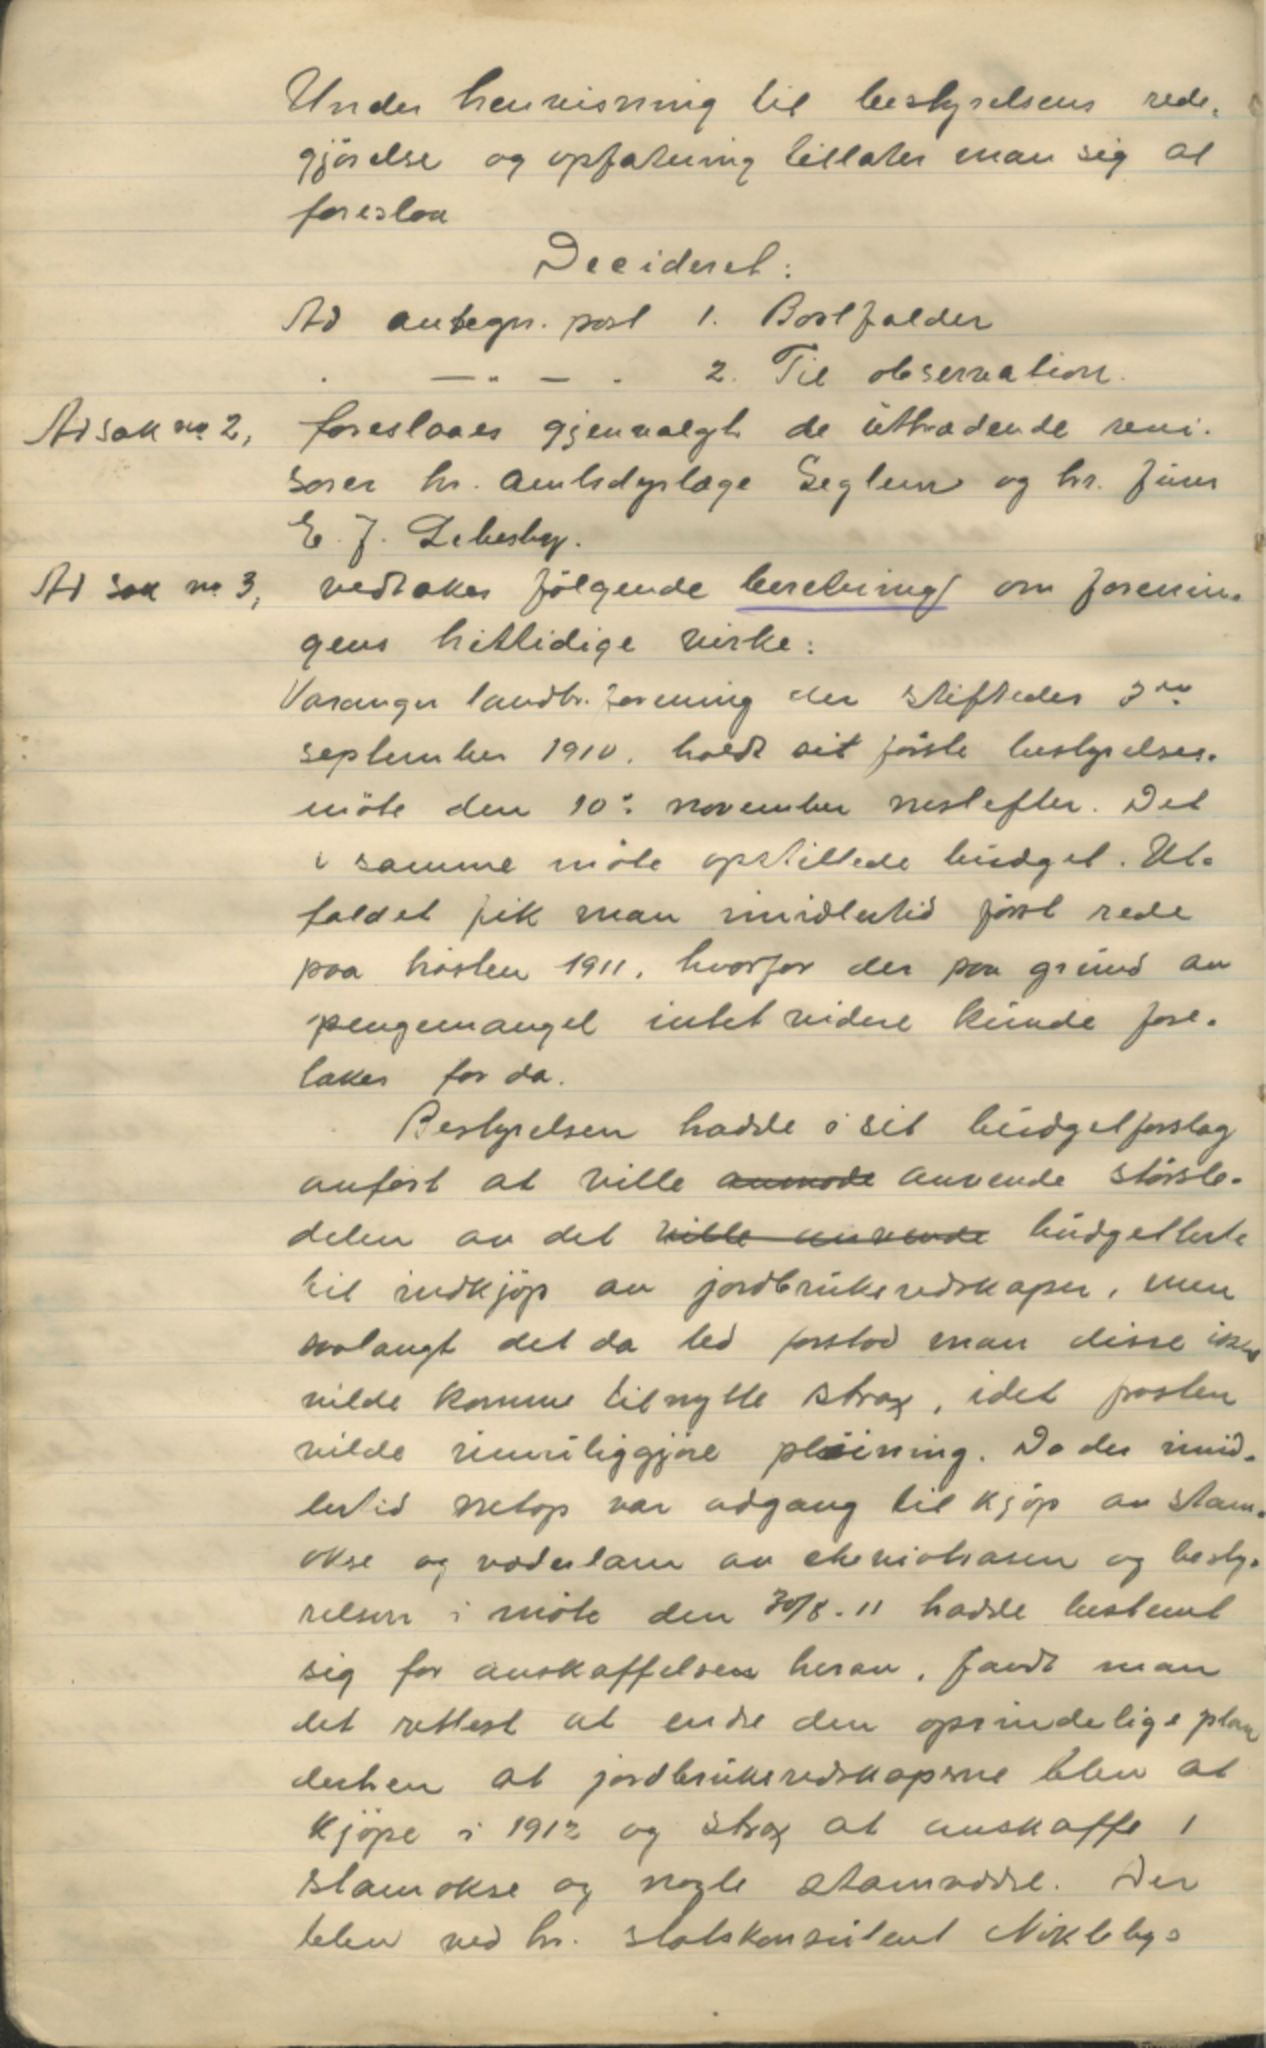 Under henvisning til bestyrelsens rede-
gjørelse og opfatning tillater man sig at
foreslaa
Decideret:
Ad antegn. post 1. Bortfalder
" — " — " 2. Til observation.
Ad sak no 2, foreslaaes gjenvalgt de uttrædende revi-
sorer hr. amtsdyrlæge Seglem og hr. fuur
E. J. Lebesby.
Ad sak no 3, vedtakes følgende beretning om forenin-
gens hittidige virke:
Varanger landbr. forening der stiftedes 3die
september 1910, holdt sit første bestyrelses-
møte den 10: november nestefter. Det
i samme møte opstillede budget. Ut-
faldet fik man imidlertid først rede
paa høsten 1911, hvorfor der paa grund av
pengemangel intet videre kunde fore-
takes før da.
Bestyrelsen hadde i sit budgetforslag
anført at ville anmode anvende største-
delen av det ville anvende budgetterte
til indkjøp av jordbruksredskaper, men
saalangt det da led forstod man disse ikke
vilde komme til nytte strax, idet frosten
vilde umuliggjøre pløining. Da der imid-
lertid netop var adgang til kjøp av stam-
okse og væderlam av cheviotrasen og besty-
relsen i møte den 30/8-11 hadde bestemt
sig for anskaffelsen herav, fandt man
det rettest at endre den oprindelige plan
derhen at jordbruksredskaperne blev at
kjøpe i 1912 og strax at anskaffe 1
stamokse og nogle stamvædre. Der
blev ved hr. statskonsulent Nikleby's